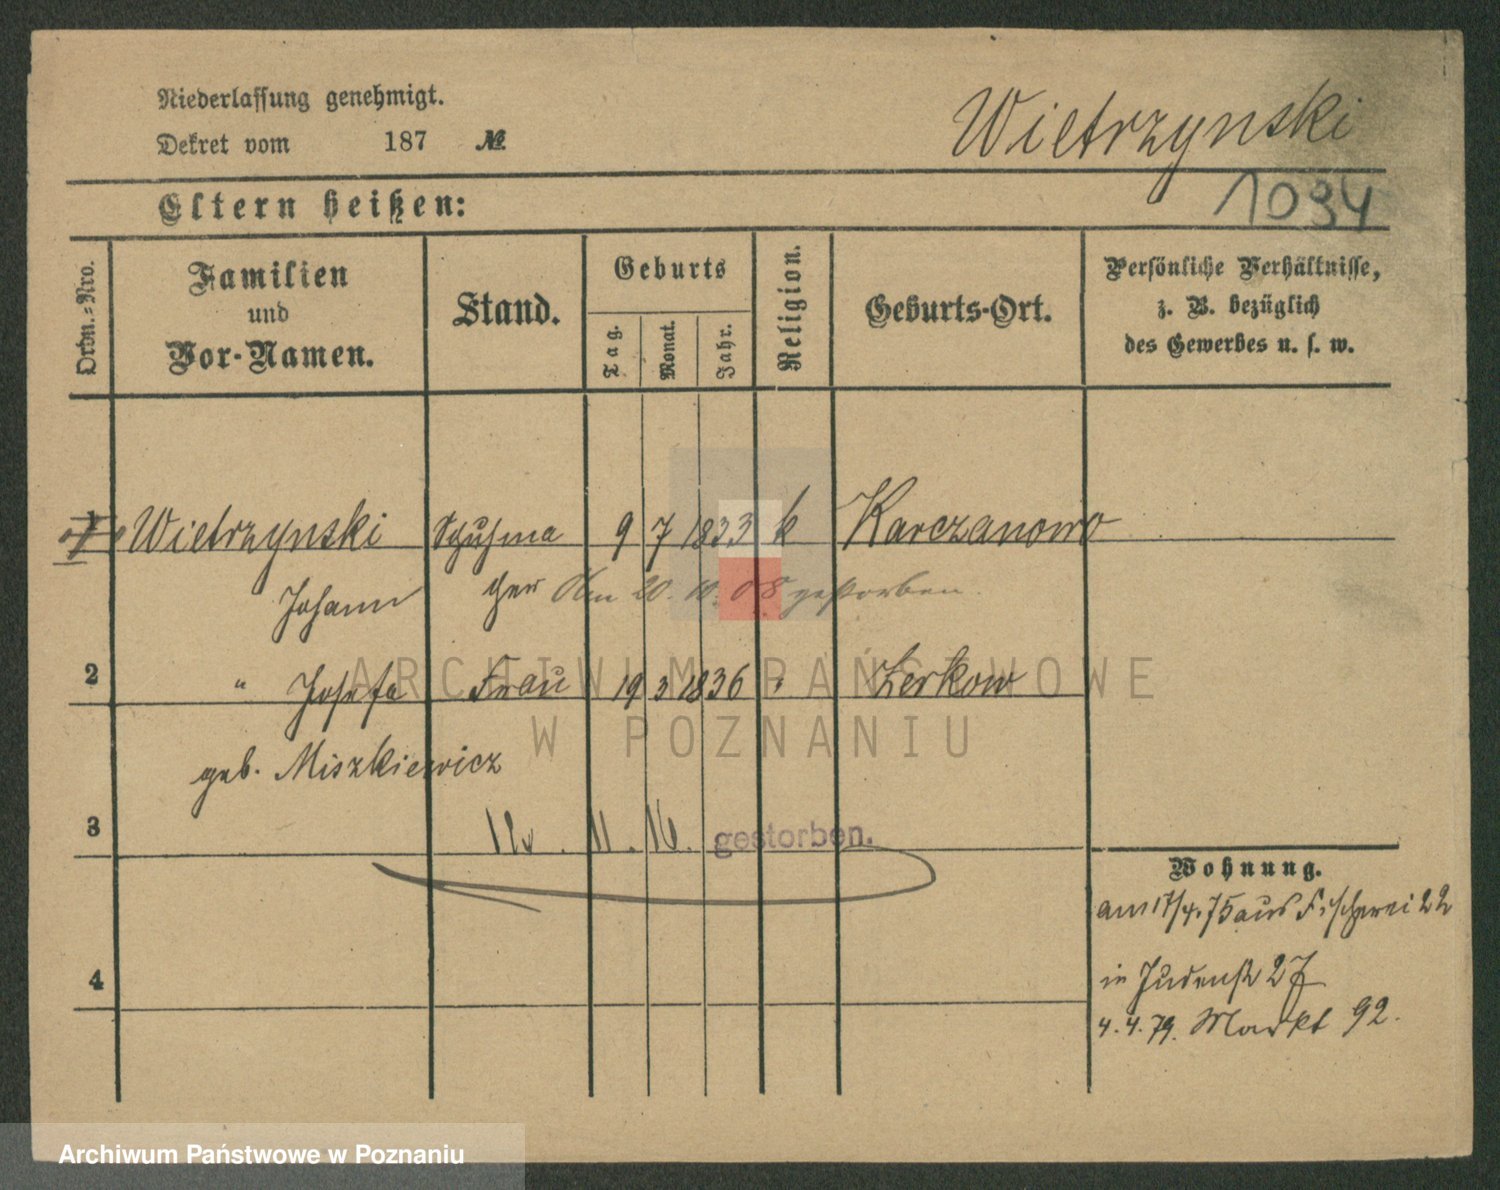 Niederlassung genehmigt.
Wietrzynski
Dekret vom 187 №
1034
Eltern heißen:
Ordn.-Nro.
Familien
und
Vor-Namen.
Stand.
Geburts
Tag.
Monat.
Jahr.
Religion.
Geburts-Ort.
Persönliche Verhältnisse,
z. B. bezüglich
des Gewerbes u. s. w.
1 Wietrzynski Schuhma 9 7 1833 k Karczanowo
Johann cher Am 20. 10. 08 gestorben.
2 " Josefa Frau 19 3 1836 " Zerkow
geb. Miszkiewicz
3 11. 16. gestorben.
Wohnung.
am 17/4.75 aus Fischerei 22
4 in Judenstr 27
4.4.79. Markt 92.
ARCHIWUM PAŃSTWOWE
W POZNANIU
Archiwum Państwowe w Poznaniu